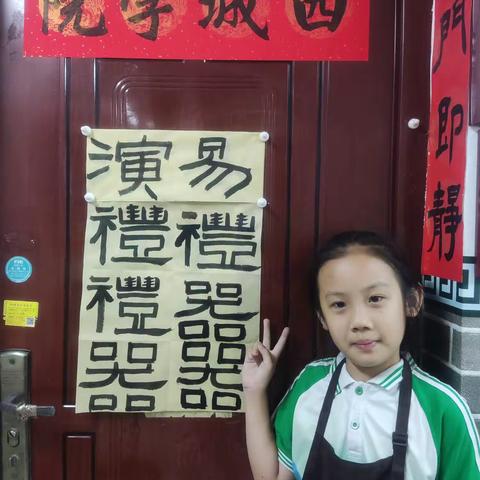 西城学院
易禮器器
演禮禮器
门即静